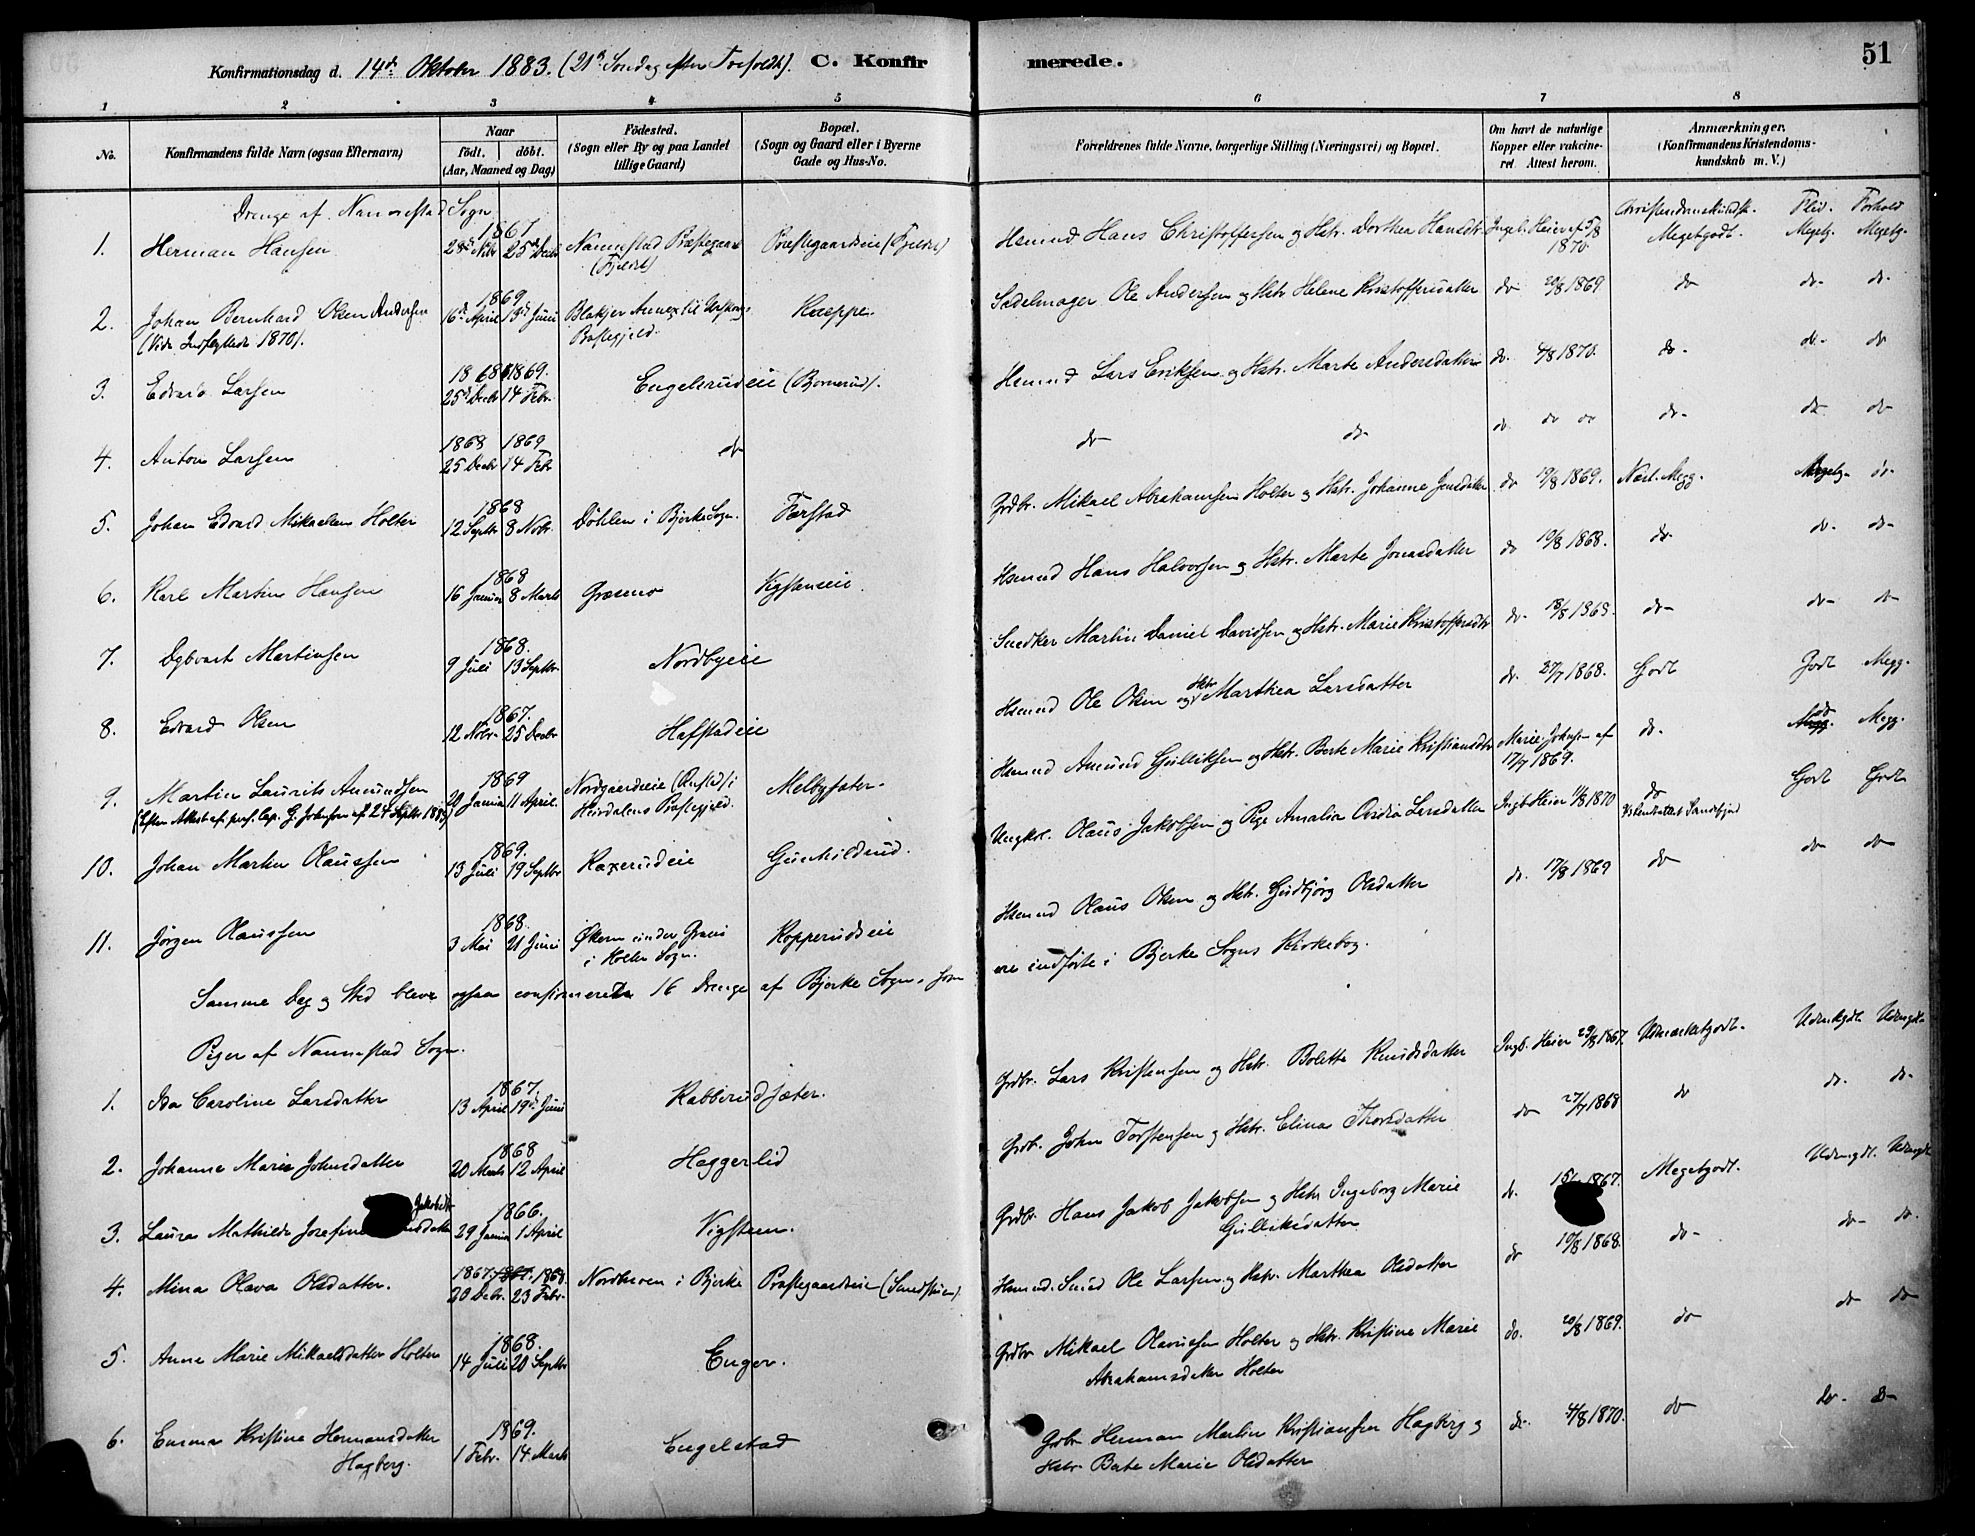 Konfirmationsdag d. 14de Oktober 1883. (21de Søndag efter Trefoldh). C. Konfirmerede. 51
1 2 3 4 5 6 7 8
No. Konfirmandens fulde Navn (ogsaa Efternavn) Naar födt. döbt. (Aar, Maaned og Dag) Födested. (Sogn eller By og paa Landet tillige Gaard) Bopæl. (Sogn og Gaard eller i Byerne Gade og Hus-No. Forældrenes fulde Navne, borgerlige Stilling (Næringsvei) og Bopæl. Om havt de naturlige Kopper eller vakcineret Attest herom. Anmærkninger. (Konfirmandens Kristendomskundskab m. V.)
Drenge af Nannestad Sogn
Christendomskundsk. Flid. Forhold
1. Herman Hansen 1867 28de Nbr 25de Decbr Nannestad Præstegaard (Fjeldst) Præstegaardseie (Fjeldst) Hsmnd Hans Christoffersen og Hstr. Dorthea Hansdtr. Ingeb. Heier af 5/8 1870. Megetgodt. Megetg. Megetg.
2. Johan Bernhard Olsen Andersen 1869 16de April 13de Juni Blakjer Annex til Urskougs Præstegjeld. Kneppe. Sadelmager Ole Andersen og Hstr Helene Kristoffersdatter do 20/8 1869. do do- do-
(Vide Indflyttede 1870).
3. Edvard Larsen 1868 1869. 25de Decbr 14 Febr. Engelsrudeie (Bornerud). Hsmnd Lars Eriksen og Hstr. Marte Andersdatter do. 4/8 1870. do- do- do
4. Anton Larsen 1868 1869 25 Decbr 14 Febr do do do- do. do do do- do do
5. Johan Edvard Mikaelsen Holter 1868 12 Septbr 8 Nobr. Döhlen i Bjerke Sogn. Farstad Grdbr. Mikael Abrahamsen Holter og Hstr. Johanne Jensdatter do 19/8 1869. Næsl. Megg. Megetg- do-
6. Karl Martin Hansen 1868 16 Januar 8 Marts Græsmo Vigsteneie Hsmnd Hans Halvorsen og Hstr. Marte Jonasdatter do 10/8 1868. do- do- do-
7. Dybvart Martinsen 1868. 9 Juli 13 Septbr. Nordbyeie Snedker Martin Daniel Davidsen og Hstr. Marie Kristoffersdtr do. 18/8 1868. do- do- do
8. Edvard Olsen 1867. 12 Nobr. 25 Decbr Hafstadeie Hsmnd Ole Olsen og Hstr Marthea Larsdatter do. 27/7 1868. Godt Godt Megg.
9. Martin Laurits Amundsen 1869 20 Januar 11 April. Nordgaardseie i Heirdalens Præstegjeld. Melbysæter. Hsmnd Amund Gulliksen og Hstr. Berte Marie Kristiansdtr Marie Johns- af 17/7 1869. do. do Megg.
(Efter Attest af pers. Cap. G. Johnson af 24 Septbr 1883)
10. Johan Martin Olaussen 1869. 13 Juli 19 Septbr Raxerudeie Gunhildrud. Ungkl. Olaus Jakobsen og Pige Amalia Ovidia Larsdatter Ingb Heier 11/8 1870 do Godt Godt
11. Jörgen Olaussen 1868. 3 Mai 21 Juni Økern under i Holter Sogn. Kopperudseie Hsmnd Olaus Olsen og Hstr. Gudbjörg Olsdatter do. 17/8 1869 do do do
Samme Dag og Sted bleve ogsaa confirmerede 16 Drenge af Bjerke Sogn, som ere indförte i Bjerke Sogns Kirkebog.
Piger af Nannestad Sogn.
1. Ida Caroline Larsdatter 1867. 13 April 19de Juni Rabberudsæter. Grdbr. Lars Kristensen og Hstr. Bolette Knudsdatter Ingb. Heier 29/8 1867. Udmærketgodt. Udmkgdt. Udmgdt.
2. Johanne Marie Johnsdatter 1868 20 Marts 12 April Haggerlid Grdb. John Torstensen og Hstr. Elina Thorsdatter do 27/7 1868 do do. do-
3. Laura Mathilde Josefine Jakobsdtr 1866. 29 Januar 1 April Vigstein. Grdbr. Hans Jakob Jakobsen og Hstr Ingeborg Marie Gulliksdatter do. 1867. Megetgodt. Udmgdt. Udmgdt
4. Mina Olava Olsdatter. 1867. 1868. 20 Debr. 23 Febr. Nordmoen i Bjerke Præstegaardseie Hsmnd. Smed Ole Larsen og Hstr. Marthea Olsdatter do 10/8 1868. do- do- do.
5. Anne Marie Mikaelsdatter Holter 1868. 14 Juli 20 Septbr Enger. Grdbr Mikael Olavesen Holter og Hstr. Kristine Marie Abrahamsdatter Holter do. 20/8 1869. do do do
6. Emma Kristine Hermansdatter Hagberg. 1869. 1 Febr. 14 Marts Engelstad Grdbr Herman Martin Kristiansen Hagberg og Hstr. Berte Marie Olsdatter do. 4/8 1870. do do- do-